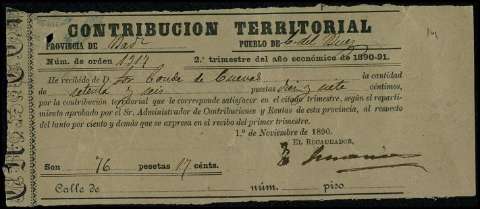 CONTRIBUCION TERRITORIAL
PROVINCIA DE Bad.z PUEBLO DE C. del Buey
Núm. de orden 1217 2.º trimestre del año económico de 1890-91.
He recibido de D. Sor. Conde de Cuevas la cantidad
de setenta y seis pesetas diez y siete céntimos,
por la contribución territorial que le corresponde satisfacer en el citado trimestre, según el reparti-
miento aprobado por el Sr. Administrador de Contribuciones y Rentas de esta provincia, al respecto
del tanto por ciento y demás que se expresa en el recibo del primer trimestre.
1.º de Noviembre de 1890.
EL RECAUDADOR,
Son 76 pesetas 17 cénts.
Calle de núm. piso